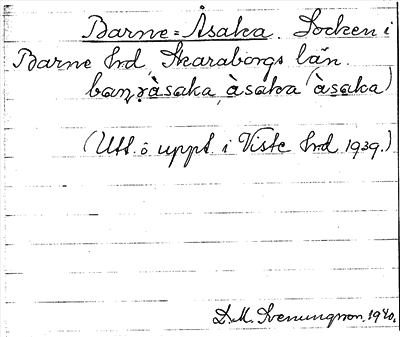 Barne-Åsaka. Socken i
Barne hrd, Skaraborgs län.
àsaka, àsaka (àsaka)
(Utt. o uppt. i Viste hrd 1939.)
D.M. Svenungsson, 1940.